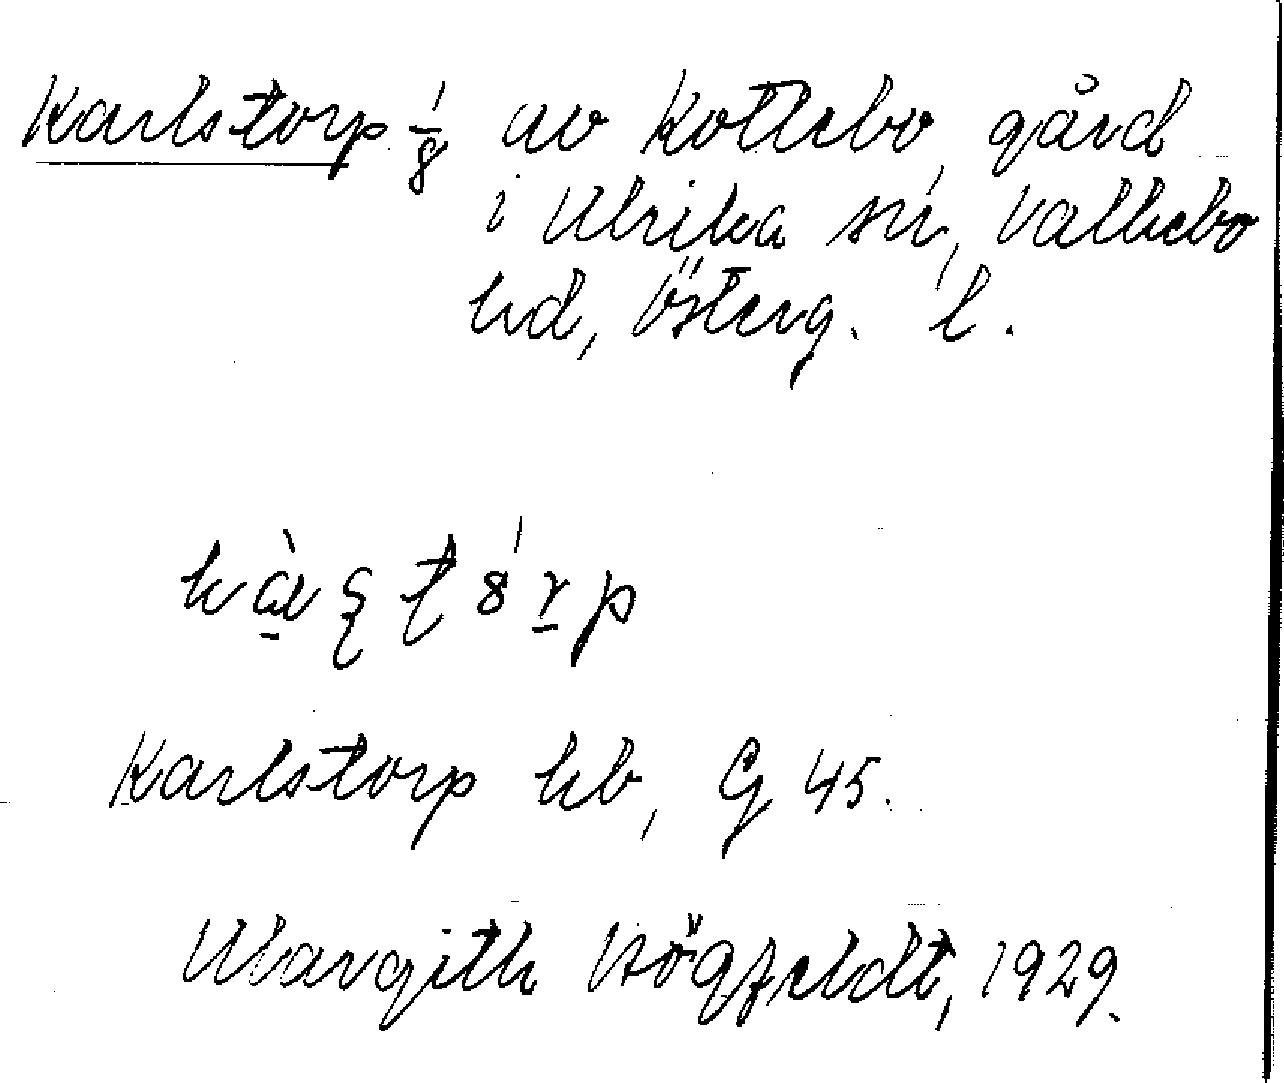 Karlstorp 1/8 av Kottebo, gård
i Ulrika sn, Valkebo
hd, Österg. l.
kàʂʈ8́rp
Karlstorp kb, G 45.
Margith Högfeldt, 1929.